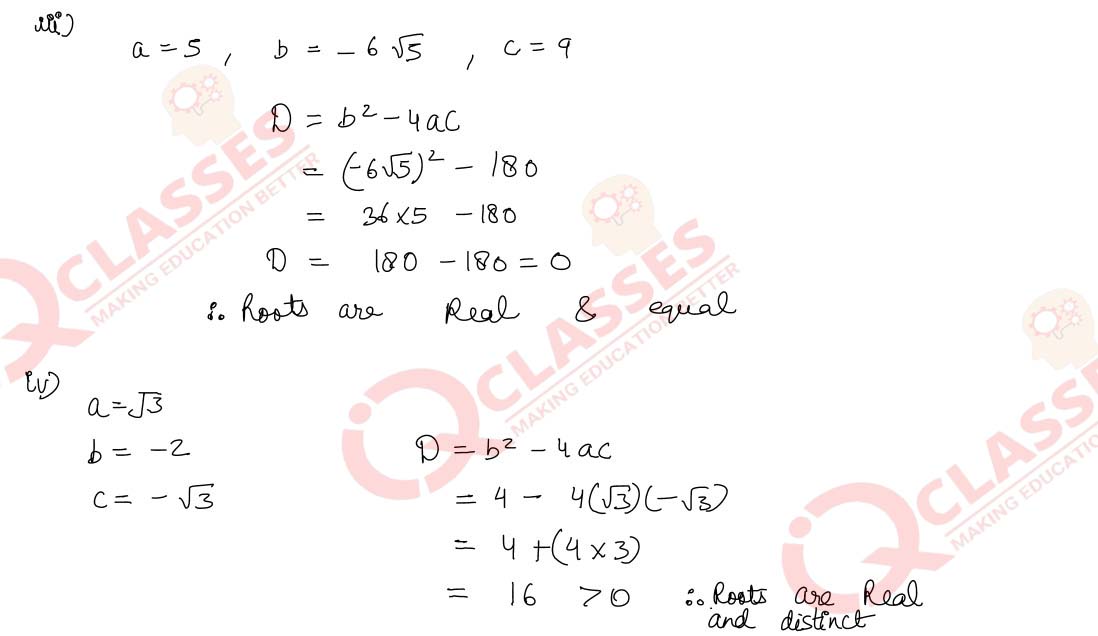 iii)
a = 5 , b = - 6 √5 , c = 9
D = b² - 4ac
= (-6√5)² - 180
= 36×5 - 180
D = 180 - 180 = 0
∴ Roots are Real & equal
iv)
a = √3
b = -2
c = - √3
D = b² - 4ac
= 4 - 4(√3)(-√3)
= 4 + (4 × 3)
= 16 > 0 ∴ Roots are Real
and distinct
QCLASSES
MAKING EDUCATION BETTER
QCLASSES
MAKING EDUCATION BETTER
QCLASSES
MAKING EDUCATIO